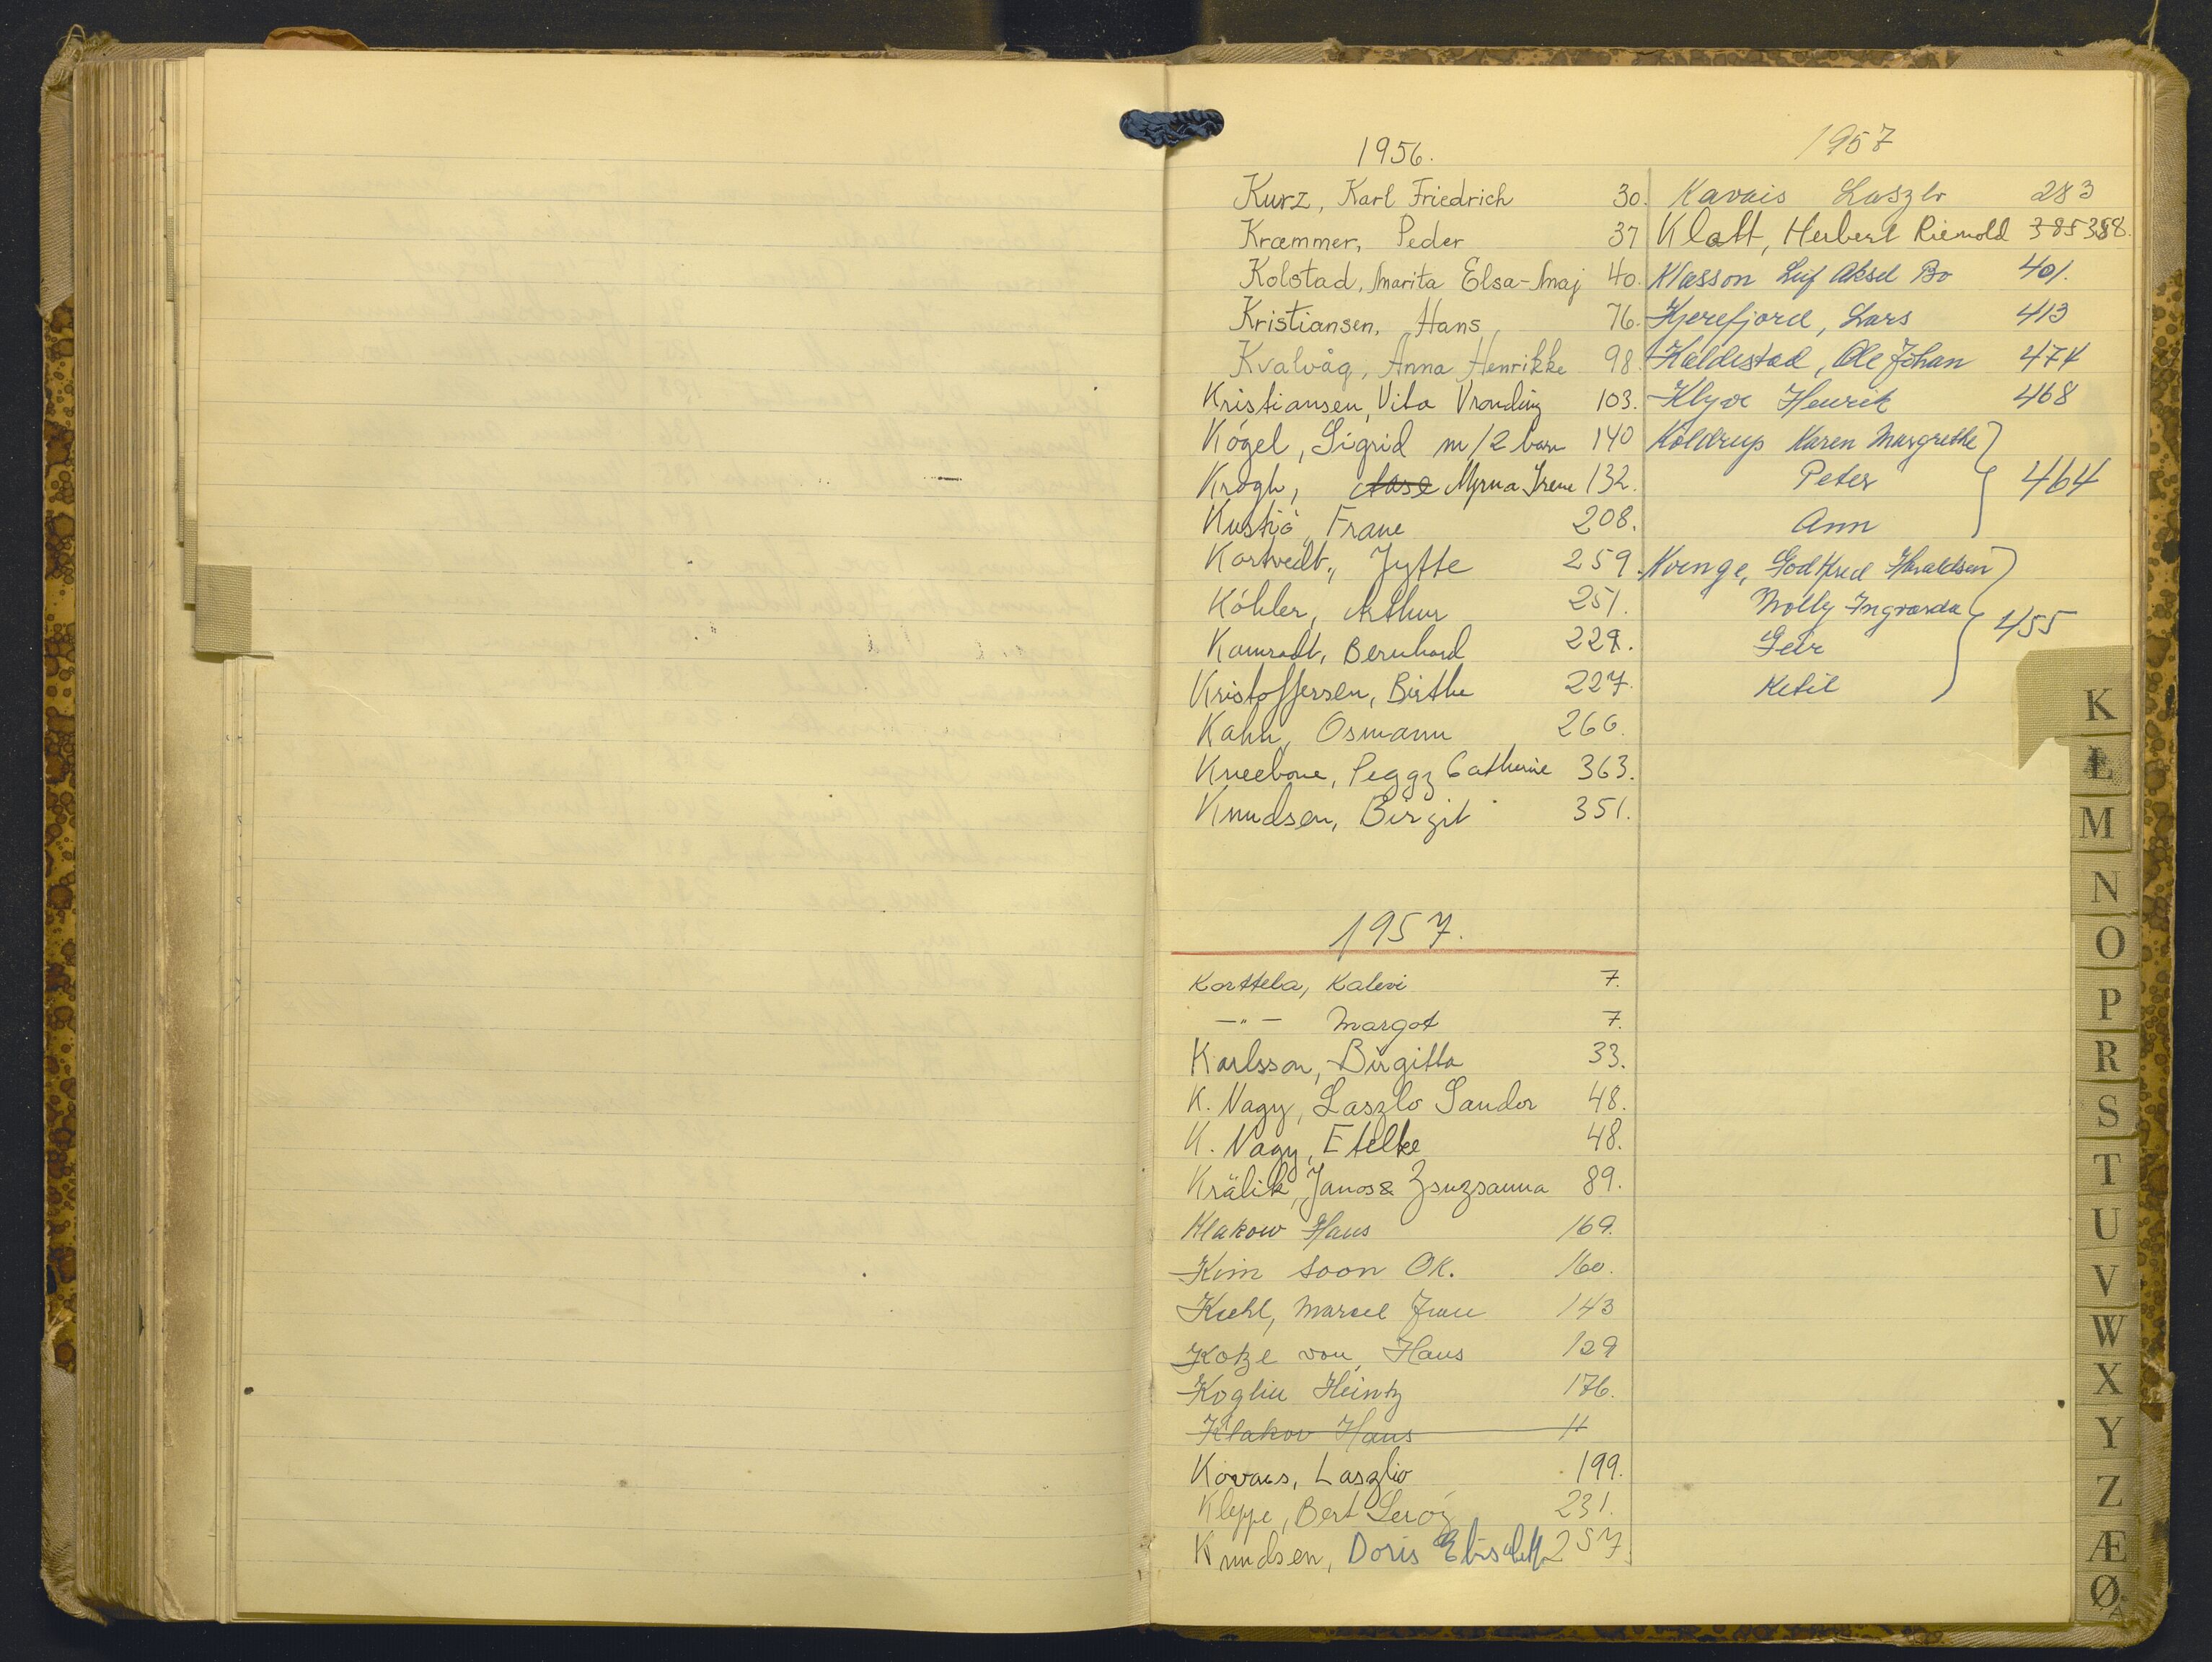 1956.
Kurz, Karl Friedrich 30.
Kræmmer, Peder 37
Kolstad, Marita Elsa-Maj 40.
Kristiansen, Hans 76.
Kvalvåg, Anna Henrikke 98.
Kristiansen, Vita 103.
Kögel, Sigrid m/2 barn 140
Krogh, Aase Myrna Irene 132.
Frane 208.
Kortvedt, Jytte 259.
Köhler, Arthur 251.
Kamradt, Bernhard
Kristoffersen, Birthe 227.
Kahn, Osmann 266.
Kneebone, Peggy Catherine 363.
Knudsen, Birgit 351.
1957.
Korttela, Kalevi 7.
—"— Margot 7.
Karlsson, Birgitta 33.
K. Nagy, Laszlo Sandor 48.
K. Nagy, Etelke 48.
Králik, Janos & Zsuzsanna 89.
Klakow Hans 169.
Kim Soon OK. 160.
Kuehl, Marcel 143
Kotze von, Hans 129
Koglin Heintz 176.
Klakov Hans "
Kovacs, Laszlo 199.
Kleppe, Bert Leroy 231.
Knudsen, Doris Elisabeth 257.
1957
Kavais Laszlo 283
Klatt, Herbert 385 388.
Klasson Leif Aksel Bo 401.
Kjerefjord, Lars 413
Kaldestad, Ole Johan 474
Klyve Henrik 468
Koldrup Karen Margrethe
Peter 464
Ann
Kvinge, Godtfred Haraldsen
Molly Ingvarda 455
Geir
Ketil
K
L
M
N
O
P
R
S
T
U
V
W
X
Y
Z
Æ
Ø
Å